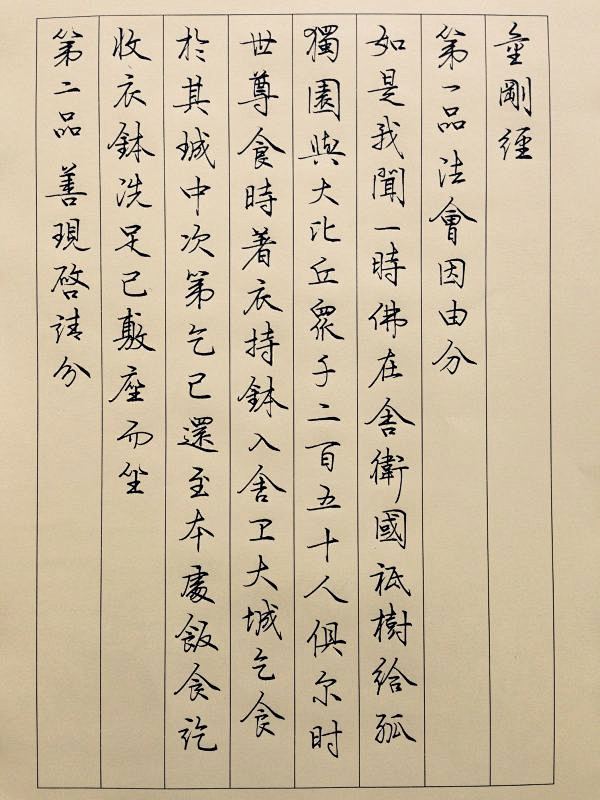 金剛經
第一品法會因由分
如是我聞一時佛在舍衛國祗樹給孤
獨園與大比丘眾千二百五十人俱尔时
世尊食時着衣持鉢入舍卫大城乞食
於其城中次第乞已還至本處飯食訖
收衣鉢洗足已敷座而坐
第二品 善現啓請分